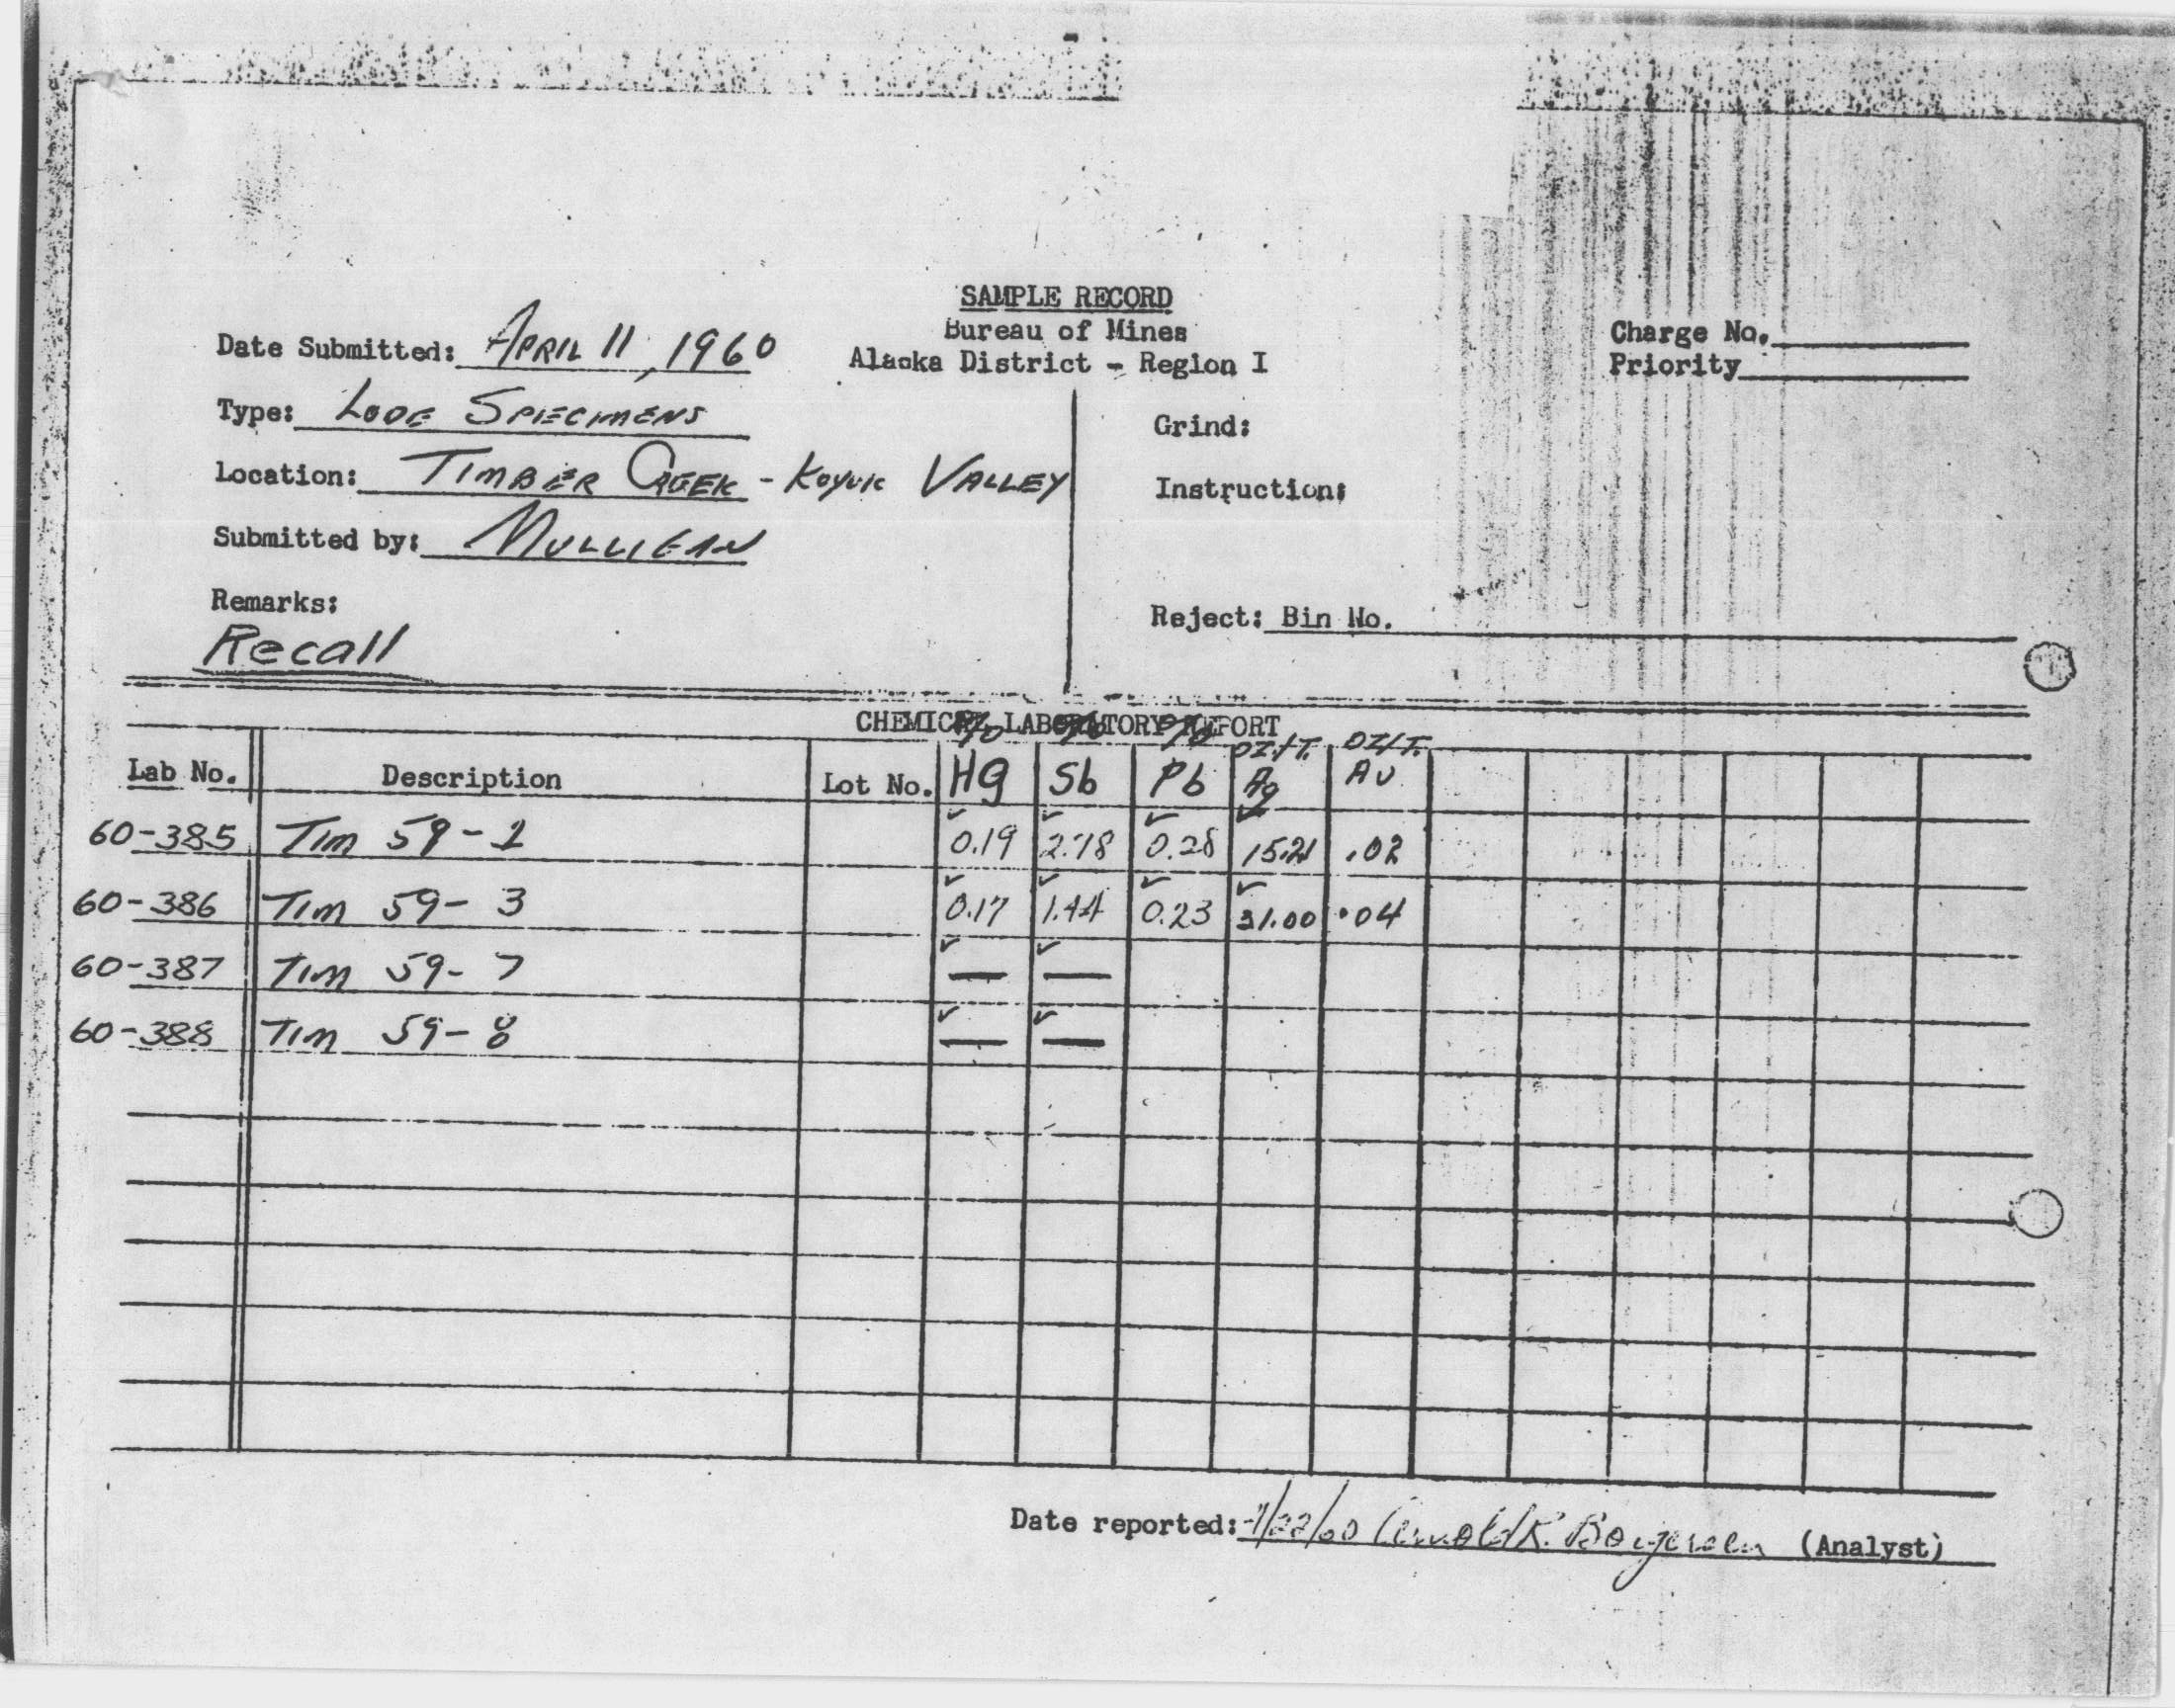 SAMPLE RECORD
Bureau of Mines
Alaska District - Region I
Date Submitted: APRIL 11, 1960
Charge No.
Priority
Type: LODE SPECIMENS
Grind:
Location: TIMBER CREEK - KOYUK VALLEY
Instruction:
Submitted by: MULLIGAN
Remarks:
Recall
Reject: Bin No.
CHEMICAL LABORATORY REPORT
% % % OZ/T. OZ/T.
Lab No. Description Lot No. Hg Sb Pb Ag Au
60-385 TIM 59-1 0.19 2.78 0.28 15.21 .02
60-386 TIM 59-3 0.17 1.44 0.23 31.00 .04
60-387 TIM 59-7 — —
60-388 TIM 59-8 — —
Date reported: /22/60 Arnold K. (Analyst)